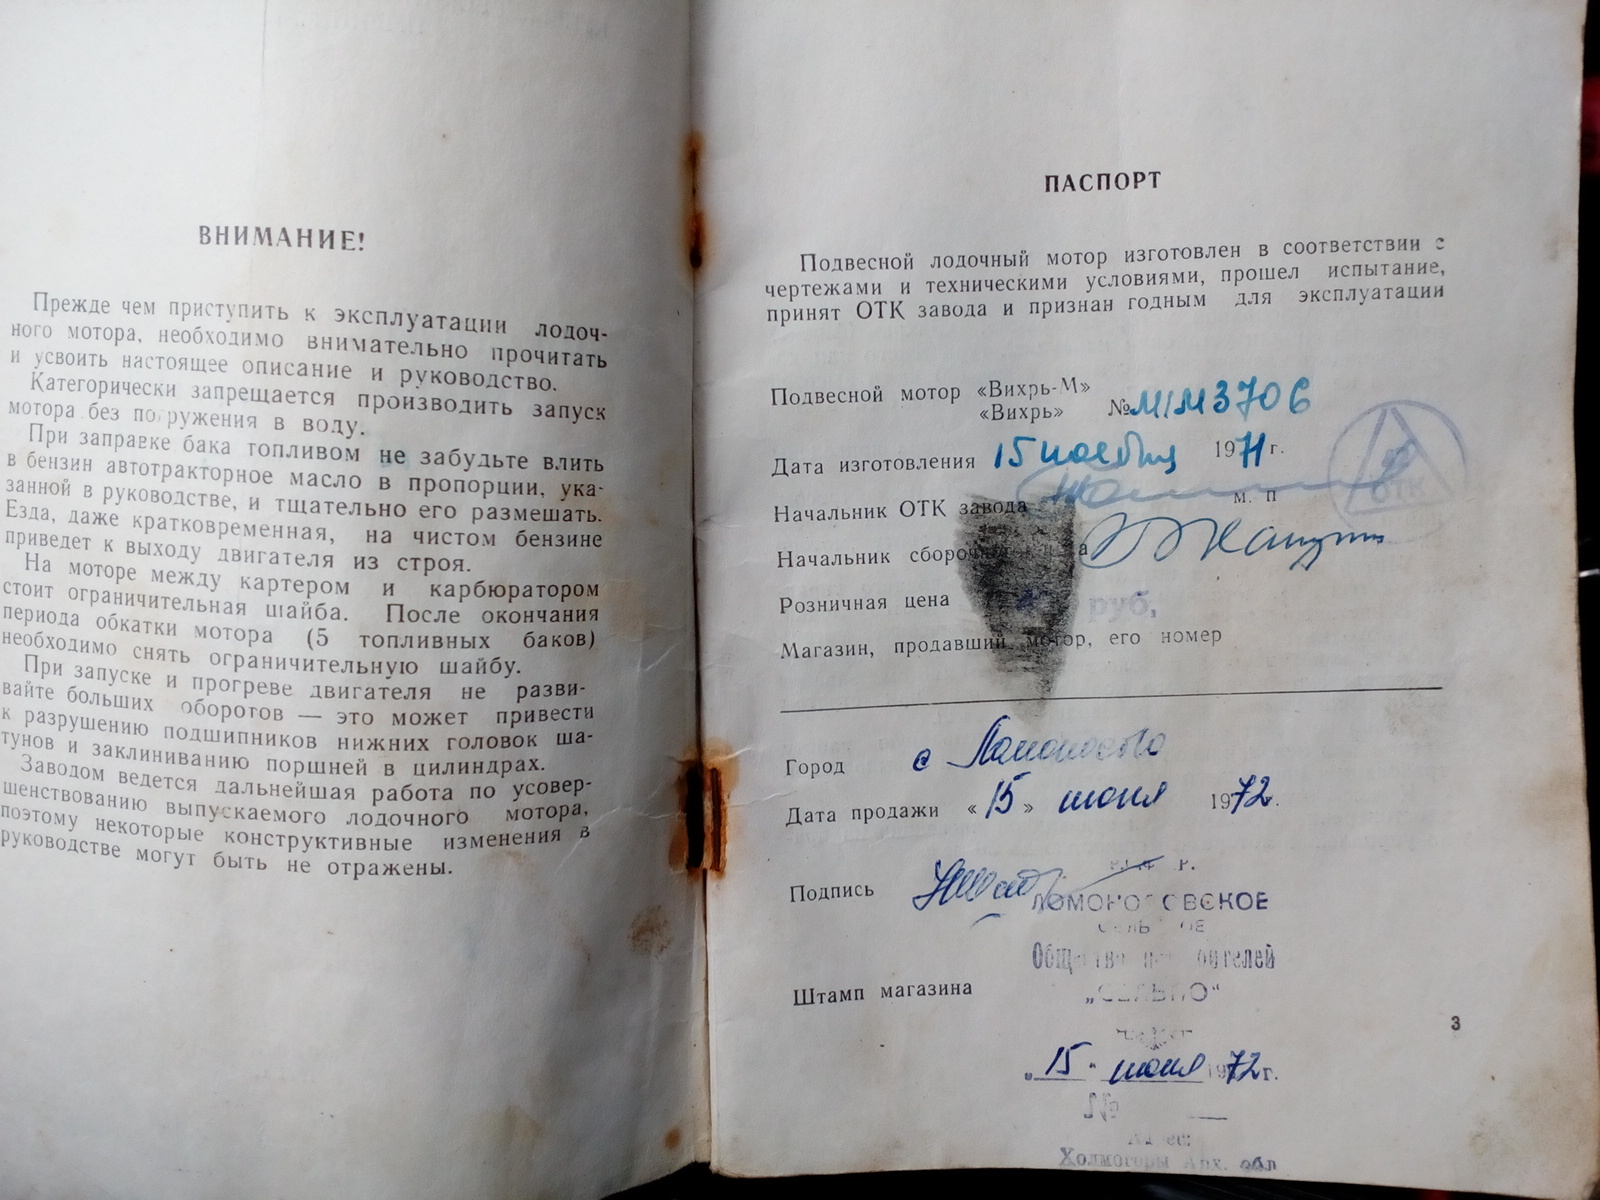 ВНИМАНИЕ!
Прежде чем приступить к эксплуатации лодоч-
ного мотора, необходимо внимательно прочитать
и усвоить настоящее описание и руководство.
Категорически запрещается производить запуск
мотора без погружения в воду.
При заправке бака топливом не забудьте влить
в бензин автотракторное масло в пропорции, ука-
занной в руководстве, и тщательно его размешать.
Езда, даже кратковременная, на чистом бензине
приведет к выходу двигателя из строя.
На моторе между картером и карбюратором
стоит ограничительная шайба. После окончания
периода обкатки мотора (5 топливных баков)
необходимо снять ограничительную шайбу.
При запуске и прогреве двигателя не разви-
вайте больших оборотов — это может привести
к разрушению подшипников нижних головок ша-
тунов и заклиниванию поршней в цилиндрах.
Заводом ведется дальнейшая работа по усовер-
шенствованию выпускаемого лодочного мотора,
поэтому некоторые конструктивные изменения в
руководстве могут быть не отражены.
ПАСПОРТ
Подвесной лодочный мотор изготовлен в соответствии с
чертежами и техническими условиями, прошел испытание,
принят ОТК завода и признан годным для эксплуатации
Подвесной мотор «Вихрь-М»
«Вихрь» № М1М3706
Дата изготовления 15 ноября 1971 г.
Начальник ОТК завода м. п
ОТК
Начальник сборочн
Розничная цена руб,
Магазин, продавший мотор, его номер
Город с Ломоносово
Дата продажи «15» июня 1972.
Подпись
ЛОМОНОСОВСКОЕ
СЕЛЬСКОЕ
Общество потребителей
Штамп магазина „СЕЛЬПО“
3
„15“ июня 1972 г.
№
Адрес:
Холмогоры Арх. обл